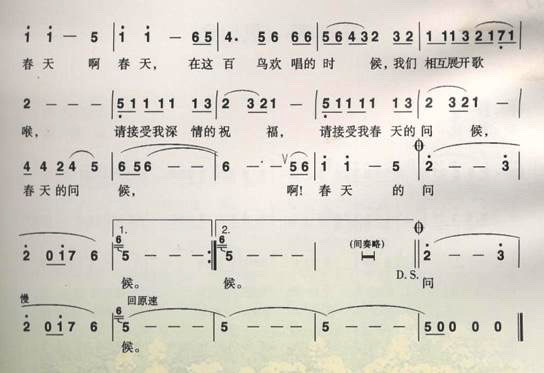 1 1 — 5 | 1 1 — 65 | 4. 56 66 | 56432 32 | 1 11 32171
春 天 啊 春天， 在这 百 鸟欢 唱的 时 候，我们 相互展开歌
2 — — — | 511111 13 | 2 321 — | 511111 13 | 2 321 —
喉， 请接受我深 情的祝 福， 请接受我春 天的问 候，
4 4 24 5 | 656 — — | 6 — — V 56 | 1 1 — 5 | 2 — — 3
春天的问 候， 啊! 春 天 的 问
1. 2. (间奏略)
2 017 6 | 5 — — — | 5 — — — | 2 — — 3
D.S.
候。 候。 问
慢 回原速
2 017 6 | 5 — — — | 5 — — — | 5 — — — | 500 0 0
候。